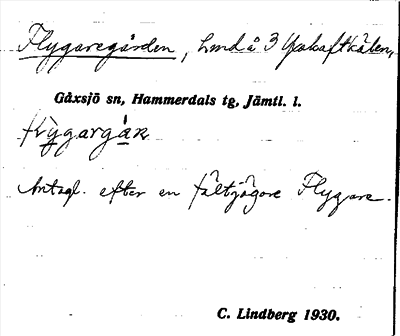 Flygaregården, hmd å 3 Yakaftkälen,
Gåxsjö sn, Hammerdals tg, Jämtl. l.
Antagl. efter en fältjägare Flygare.
C. Lindberg 1930.